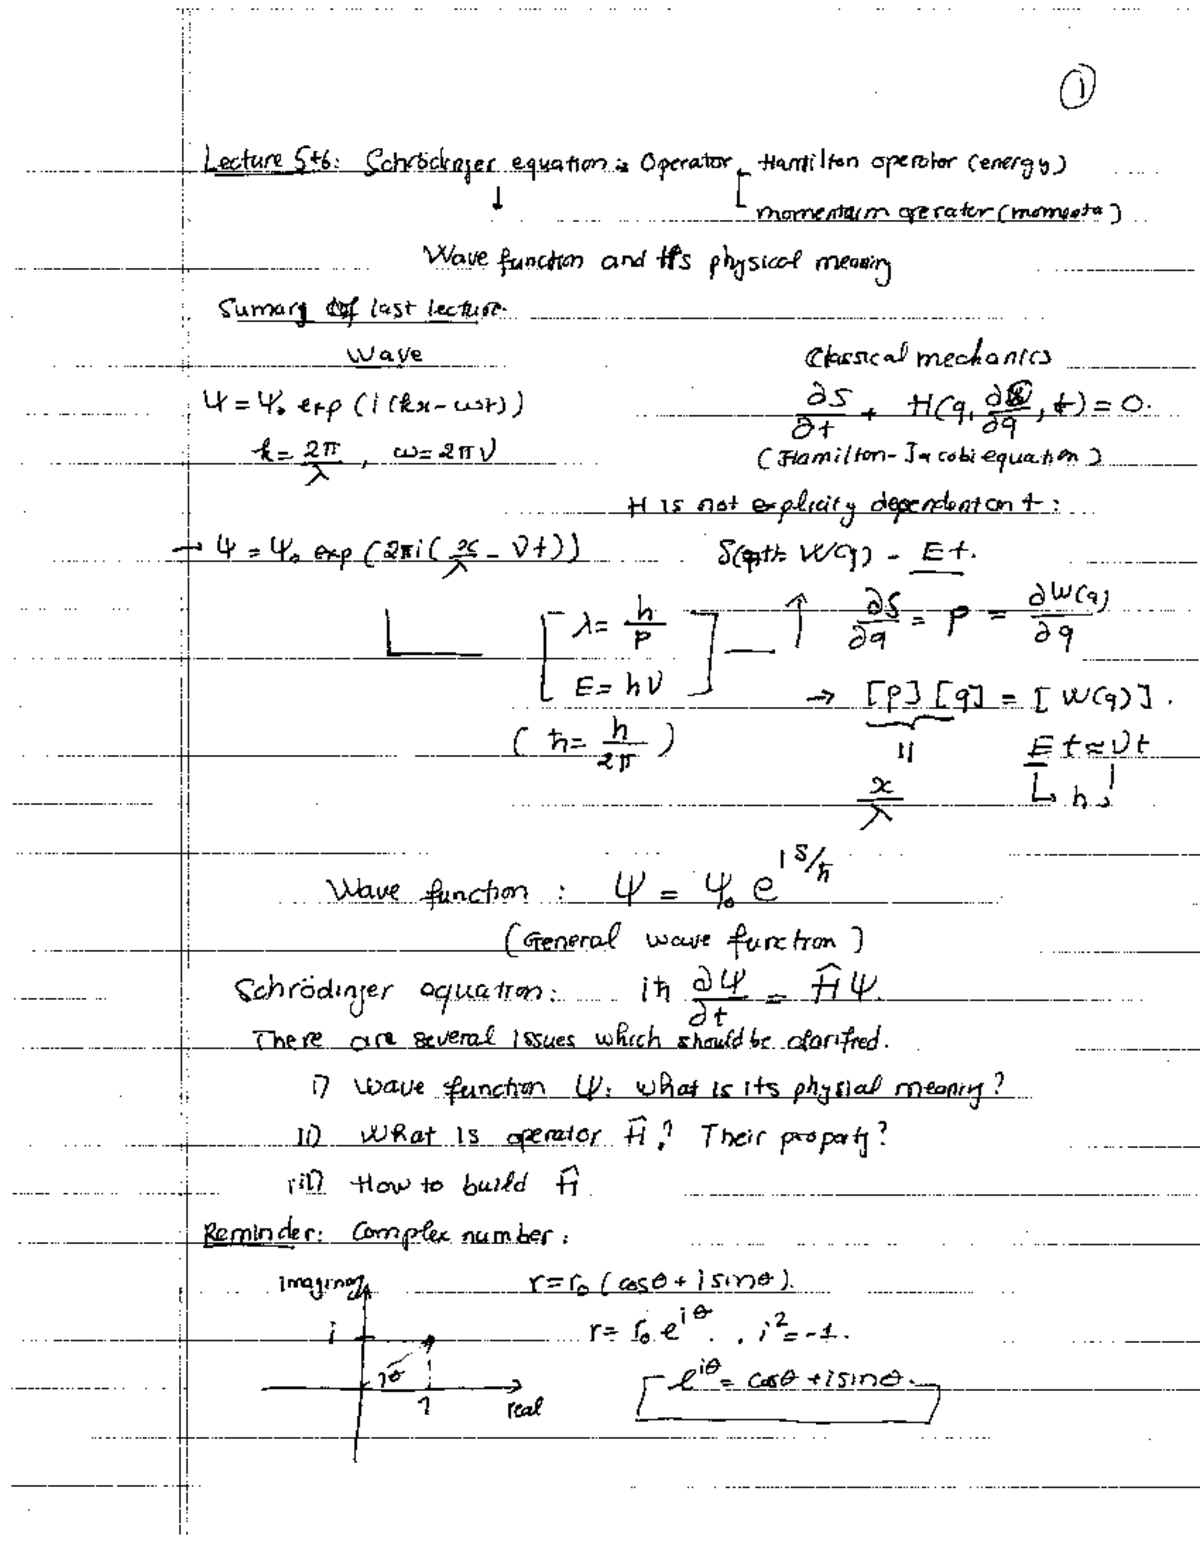 1
Lecture 5+6: Schrödinger equation: Operator Hamilton operator (energy)
↓ momentum operator (momenta)
Wave function and it's physical meaning
Sumary of last lecture.
Wave Classical mechanics
Ψ = Ψ₀ exp (i(kx - ωt)) ∂S/∂t + H(q, ∂S/∂q, t) = 0.
k = 2π/λ , ω = 2πν (Hamilton-Jacobi equation)
H is not explicity dependent on t:
→ Ψ = Ψ₀ exp (2πi (x/λ - νt)) S(q,t) = W(q) - Et.
[ λ = h/p ↑ ∂S/∂q = p = ∂W(q)/∂q
E = hν ] → [p][q] = [W(q)].
(ħ = h/2π) || Et ≈ νt
x/λ h
Wave function : Ψ = Ψ₀ e^{iS/ħ}
(General wave function)
Schrödinger equation: iħ ∂Ψ/∂t = ĤΨ.
There are several issues which should be clarified.
i) Wave function Ψ: what is its physial meaning?
ii) What is operator Ĥ? Their property?
iii) How to build Ĥ
Reminder: Complex number:
imaginary r = r₀ (cosθ + i sinθ).
i r = r₀ e^{iθ}. , i² = -1.
θ e^{iθ} = cosθ + i sinθ.
1 real